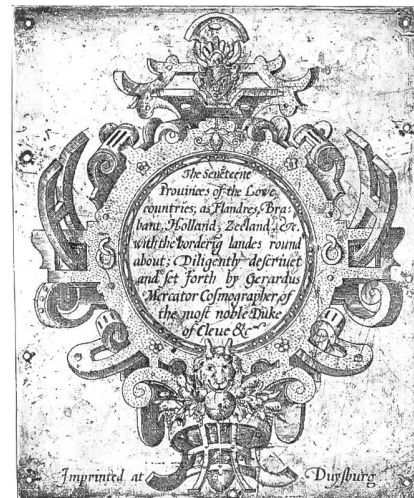 The Seuẽteene
Prouinces of the Lowe
countries, as Flandres, Bra-
bant, Holland, Zeeland, &c.
with the borderig landes round
about; Diligently descriuet
and set forth by Gerardus
Mercator Cosmographer of
the most noble Duke
of Cleue &c
Imprinted at Duysburg